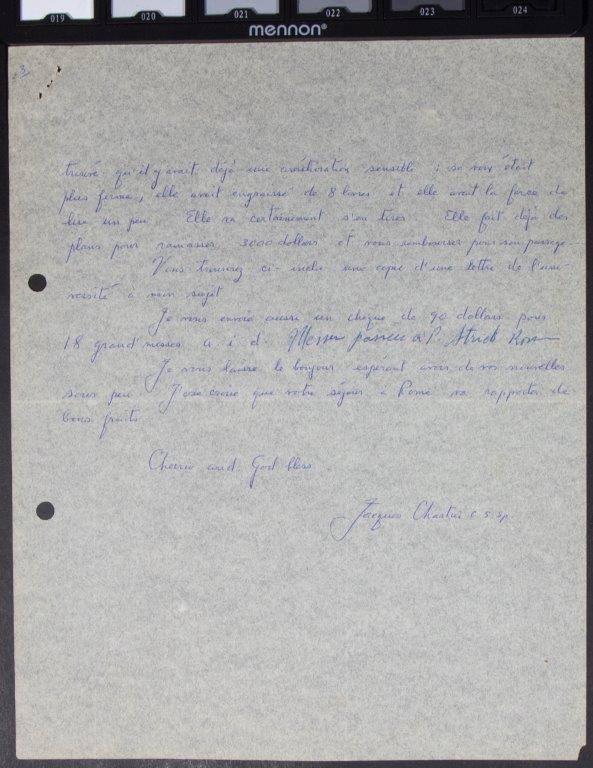 019 020 021 022 023 024
mennon®
3
trouvé qu'il y avait déjà une amélioration sensible ; sa voix était
plus ferme, elle avait engraissé de 8 livres et elle avait la force de
lire un peu Elle va certainement s'en tirer Elle fait déjà des
plans pour ramasser 3000 dollars et vous rembourser pour son passage
Vous trouverez ci-inclu une copie d'une lettre de l'uni-
versité à mon sujet
Je vous envoie aussi un chèque de 90 dollars pour
18 grand'messes a i d. Messes passées à P. Strick Rom
Je vous laisse le bonjour espérant avoir de vos nouvelles
sous peu J'ose croire que votre séjour à Rome va rapporter de
bons fruits
Cheerio and God bless
Jacques c.s.sp.